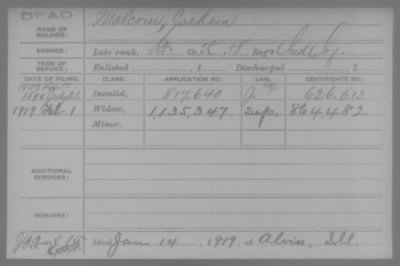 DEAD
NAME OF SOLDIER: Malcom, Jackson
SERVICE: Late rank, Co. K, Reg't Ind Inf.
TERM OF SERVICE: Enlisted , 1 Discharged , 1
DATE OF FILING. CLASS. APPLICATION NO. LAW. CERTIFICATE NO.
Invalid, 817,640 626,613
1919 Feb 1 Widow, 1,135,347 Sep. 864,482
Minor,
ADDITIONAL SERVICES:
REMARKS:
Died Jan 14, 1919, at Alvin, Ill.